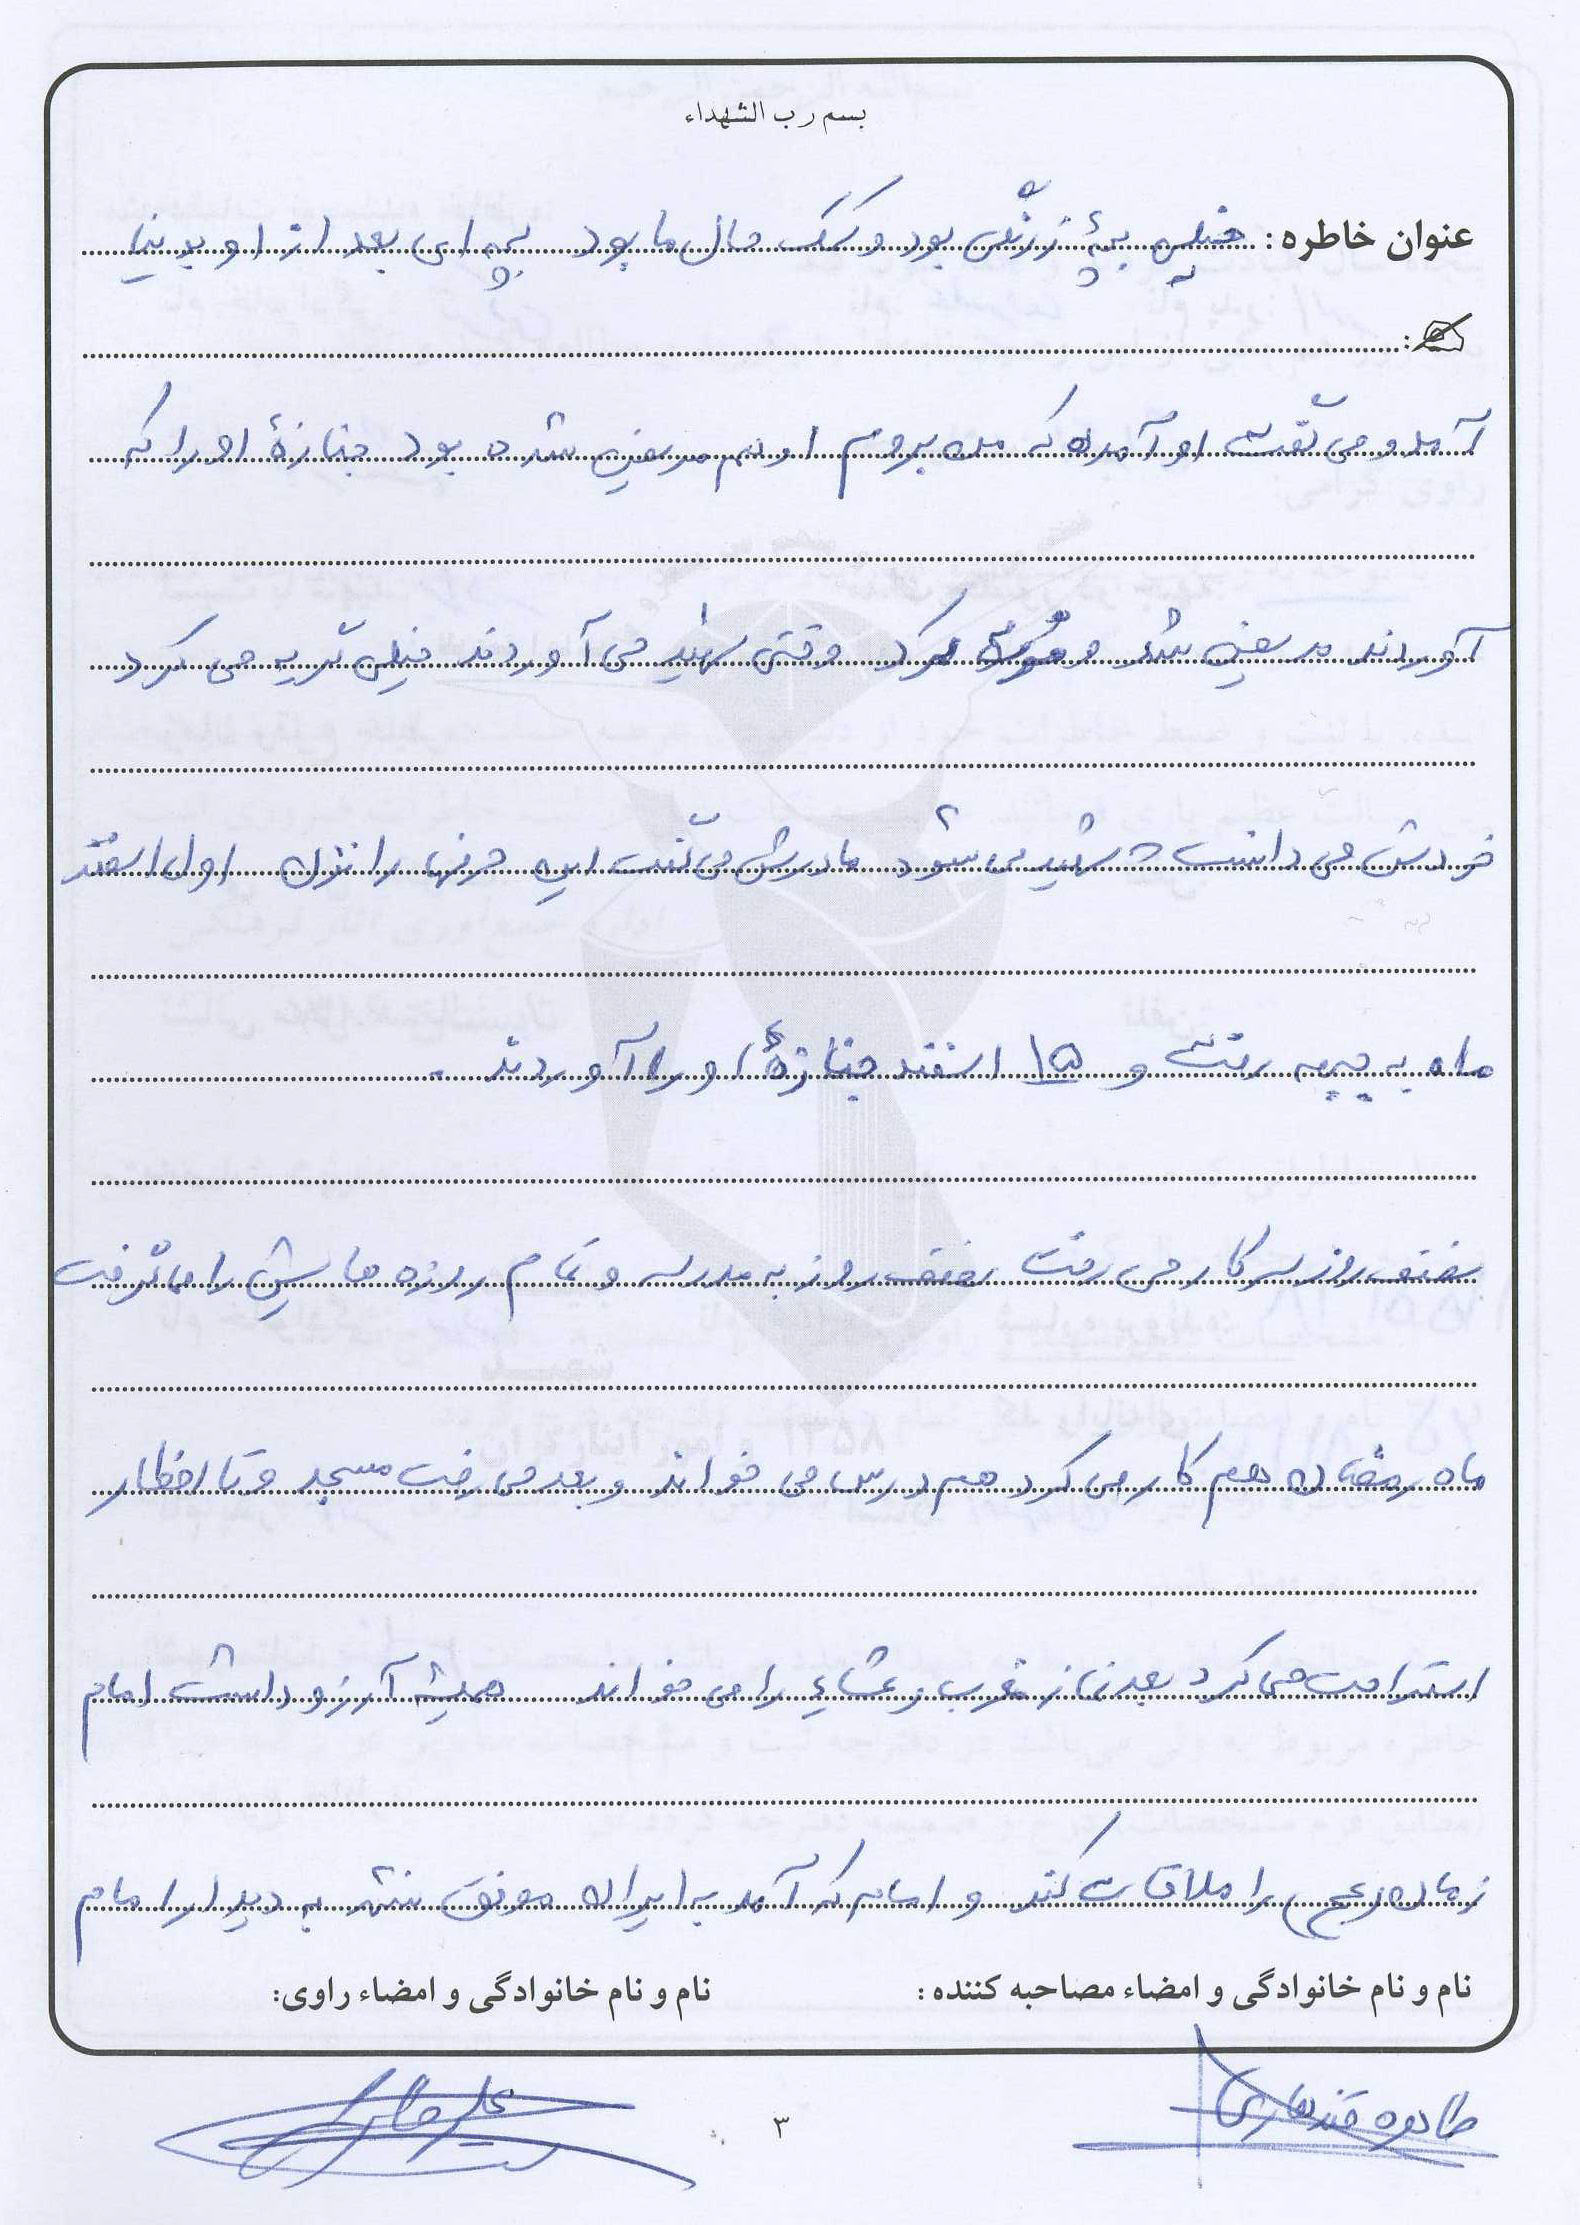 بسم رب الشهداء
عنوان خاطره: خیلی بچهٔ زرنگی بود و کمک حال ما بود بچه ای بعد از او بدنیا
آمد و می گفت او آمده که من بروم او هم مریض شده بود جنازهٔ او را که
آوردند مریض شد و کرد وقتی شهید می آوردند خیلی گریه می کرد
خودش می دانست که شهید می شود مادرش می گفت این حرفها را نزن اول اسفند
ماه به جبهه رفت و ۱۵ اسفند جنازهٔ او را آوردند.
نصف روز سر کار می رفت نصف روز به مدرسه و تمام روزه هایش را ما گرفت
ماه رمضان هم کار می کرد هم درس می خواند و بعد می رفت مسجد و تا افطار
استراحت می کرد بعد نماز مغرب و عشاء را می خواند همیشه آرزو داشت امام
زمان (عج) را ملاقات کند و امام که آمد به ایران موفق نشد به دیدار امام
نام و نام خانوادگی و امضاء مصاحبه کننده: نام و نام خانوادگی و امضاء راوی:
طاهره قندهاری
۳